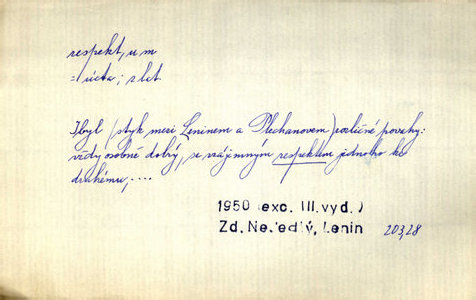 respekt, u m
= úcta; zlet
Zbyl (styk mezi Leninem a Plechanovem) rozličné povahy:
vždy osobně dobrý, se vzájemným respektem jednoho ke
druhému, ....
1950 (exc. III. vyd.)
Zd. Nejedlý, Lenin 203,28